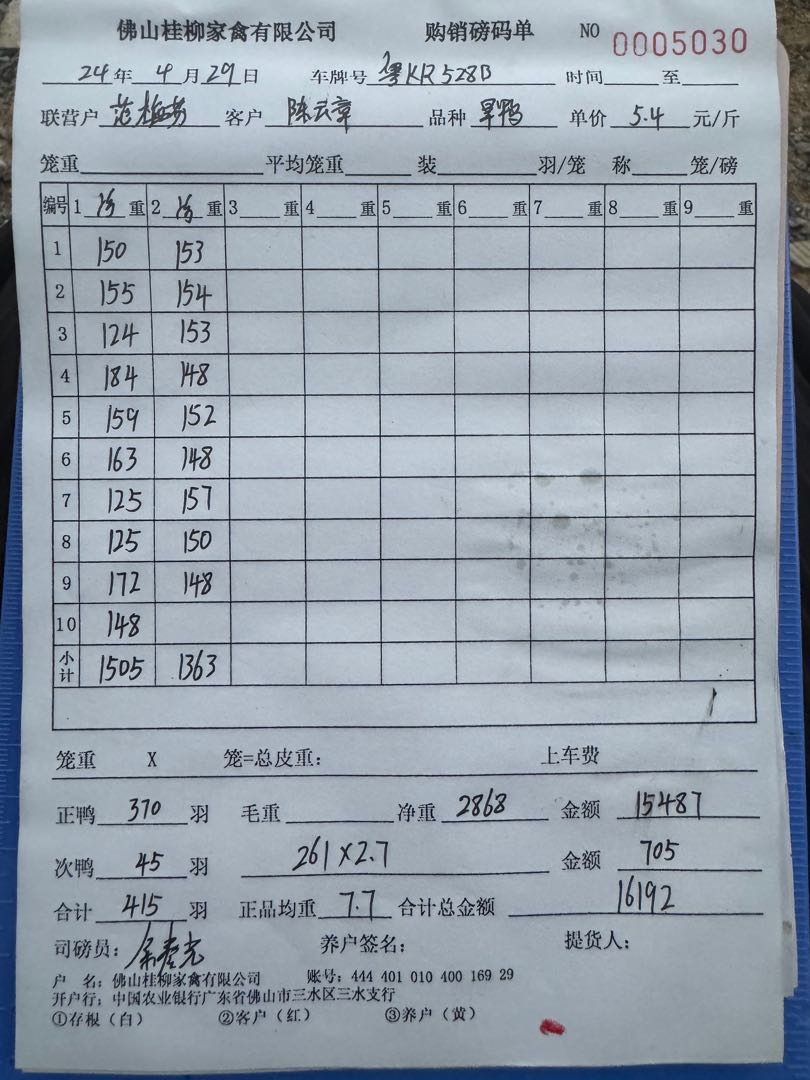 佛山桂柳家禽有限公司 购销磅码单 NO 0005030
24年4月29日 车牌号 粤KR528B 时间 至
联营户 客户 陈云章 品种 旱鸭 单价 5.4 元/斤
笼重 平均笼重 装 羽/笼 称 笼/磅
编号 1 重 2 重 3 重 4 重 5 重 6 重 7 重 8 重 9 重
1 150 153
2 155 154
3 124 153
4 184 148
5 159 152
6 163 148
7 125 157
8 125 150
9 172 148
10 148
小计 1505 1363
笼重 X 笼=总皮重: 上车费
正鸭 370 羽 毛重 净重 2868 金额 15487
次鸭 45 羽 261×2.7 金额 705
合计 415 羽 正品均重 7.7 合计总金额 16192
司磅员: 养户签名: 提货人:
户 名: 佛山桂柳家禽有限公司 账号: 444 401 010 400 169 29
开户行: 中国农业银行广东省佛山市三水区三水支行
①存根（白） ②客户（红） ③养户（黄）